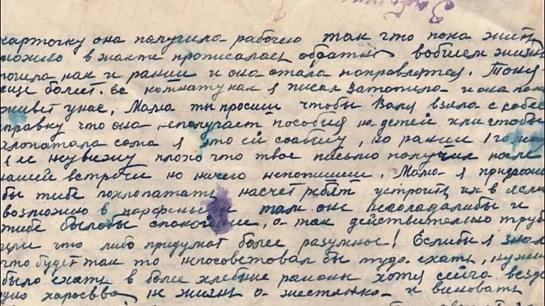 карточку она получила рабочую так что пока жить
можно в жакте прописалась обратно вобщем жизнь
пошла как и раньше и она стала поправлятся. Тоня
еще болеет. Ее комнату как я писал затопило и она пока
живет у нас, Мама ты просиш чтобы Валя взяла с работы
справку что она неполучает пособия на детей или чтобы
хлопотала сама я это ей сообщу, но раньше 1го
я ее неувижу плохо что твое письмо получил после
нашей встречи но ничего непопишеш. Мама я
бы тибе похлопотать насчет ребят устроить их в ясли
возможно в и там они неголодалибы и
тибе былобы спокойнее, а так действительно
что либо придумат более разумное! Еслибы я знал
что будет так то непосоветовал бы туда ехать, нужно
было ехать в более хлебные районы хотя сейчас везде
не жизнь а жестянка и виновать